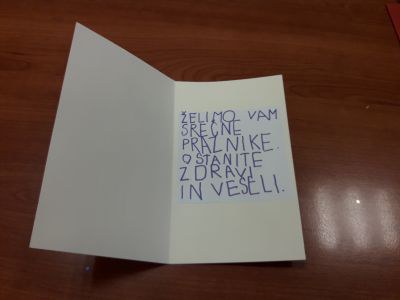 ŽELIMO VAM
SREČNE
PRAZNIKE.
OSTANITE
ZDRAVI
IN VESELI.